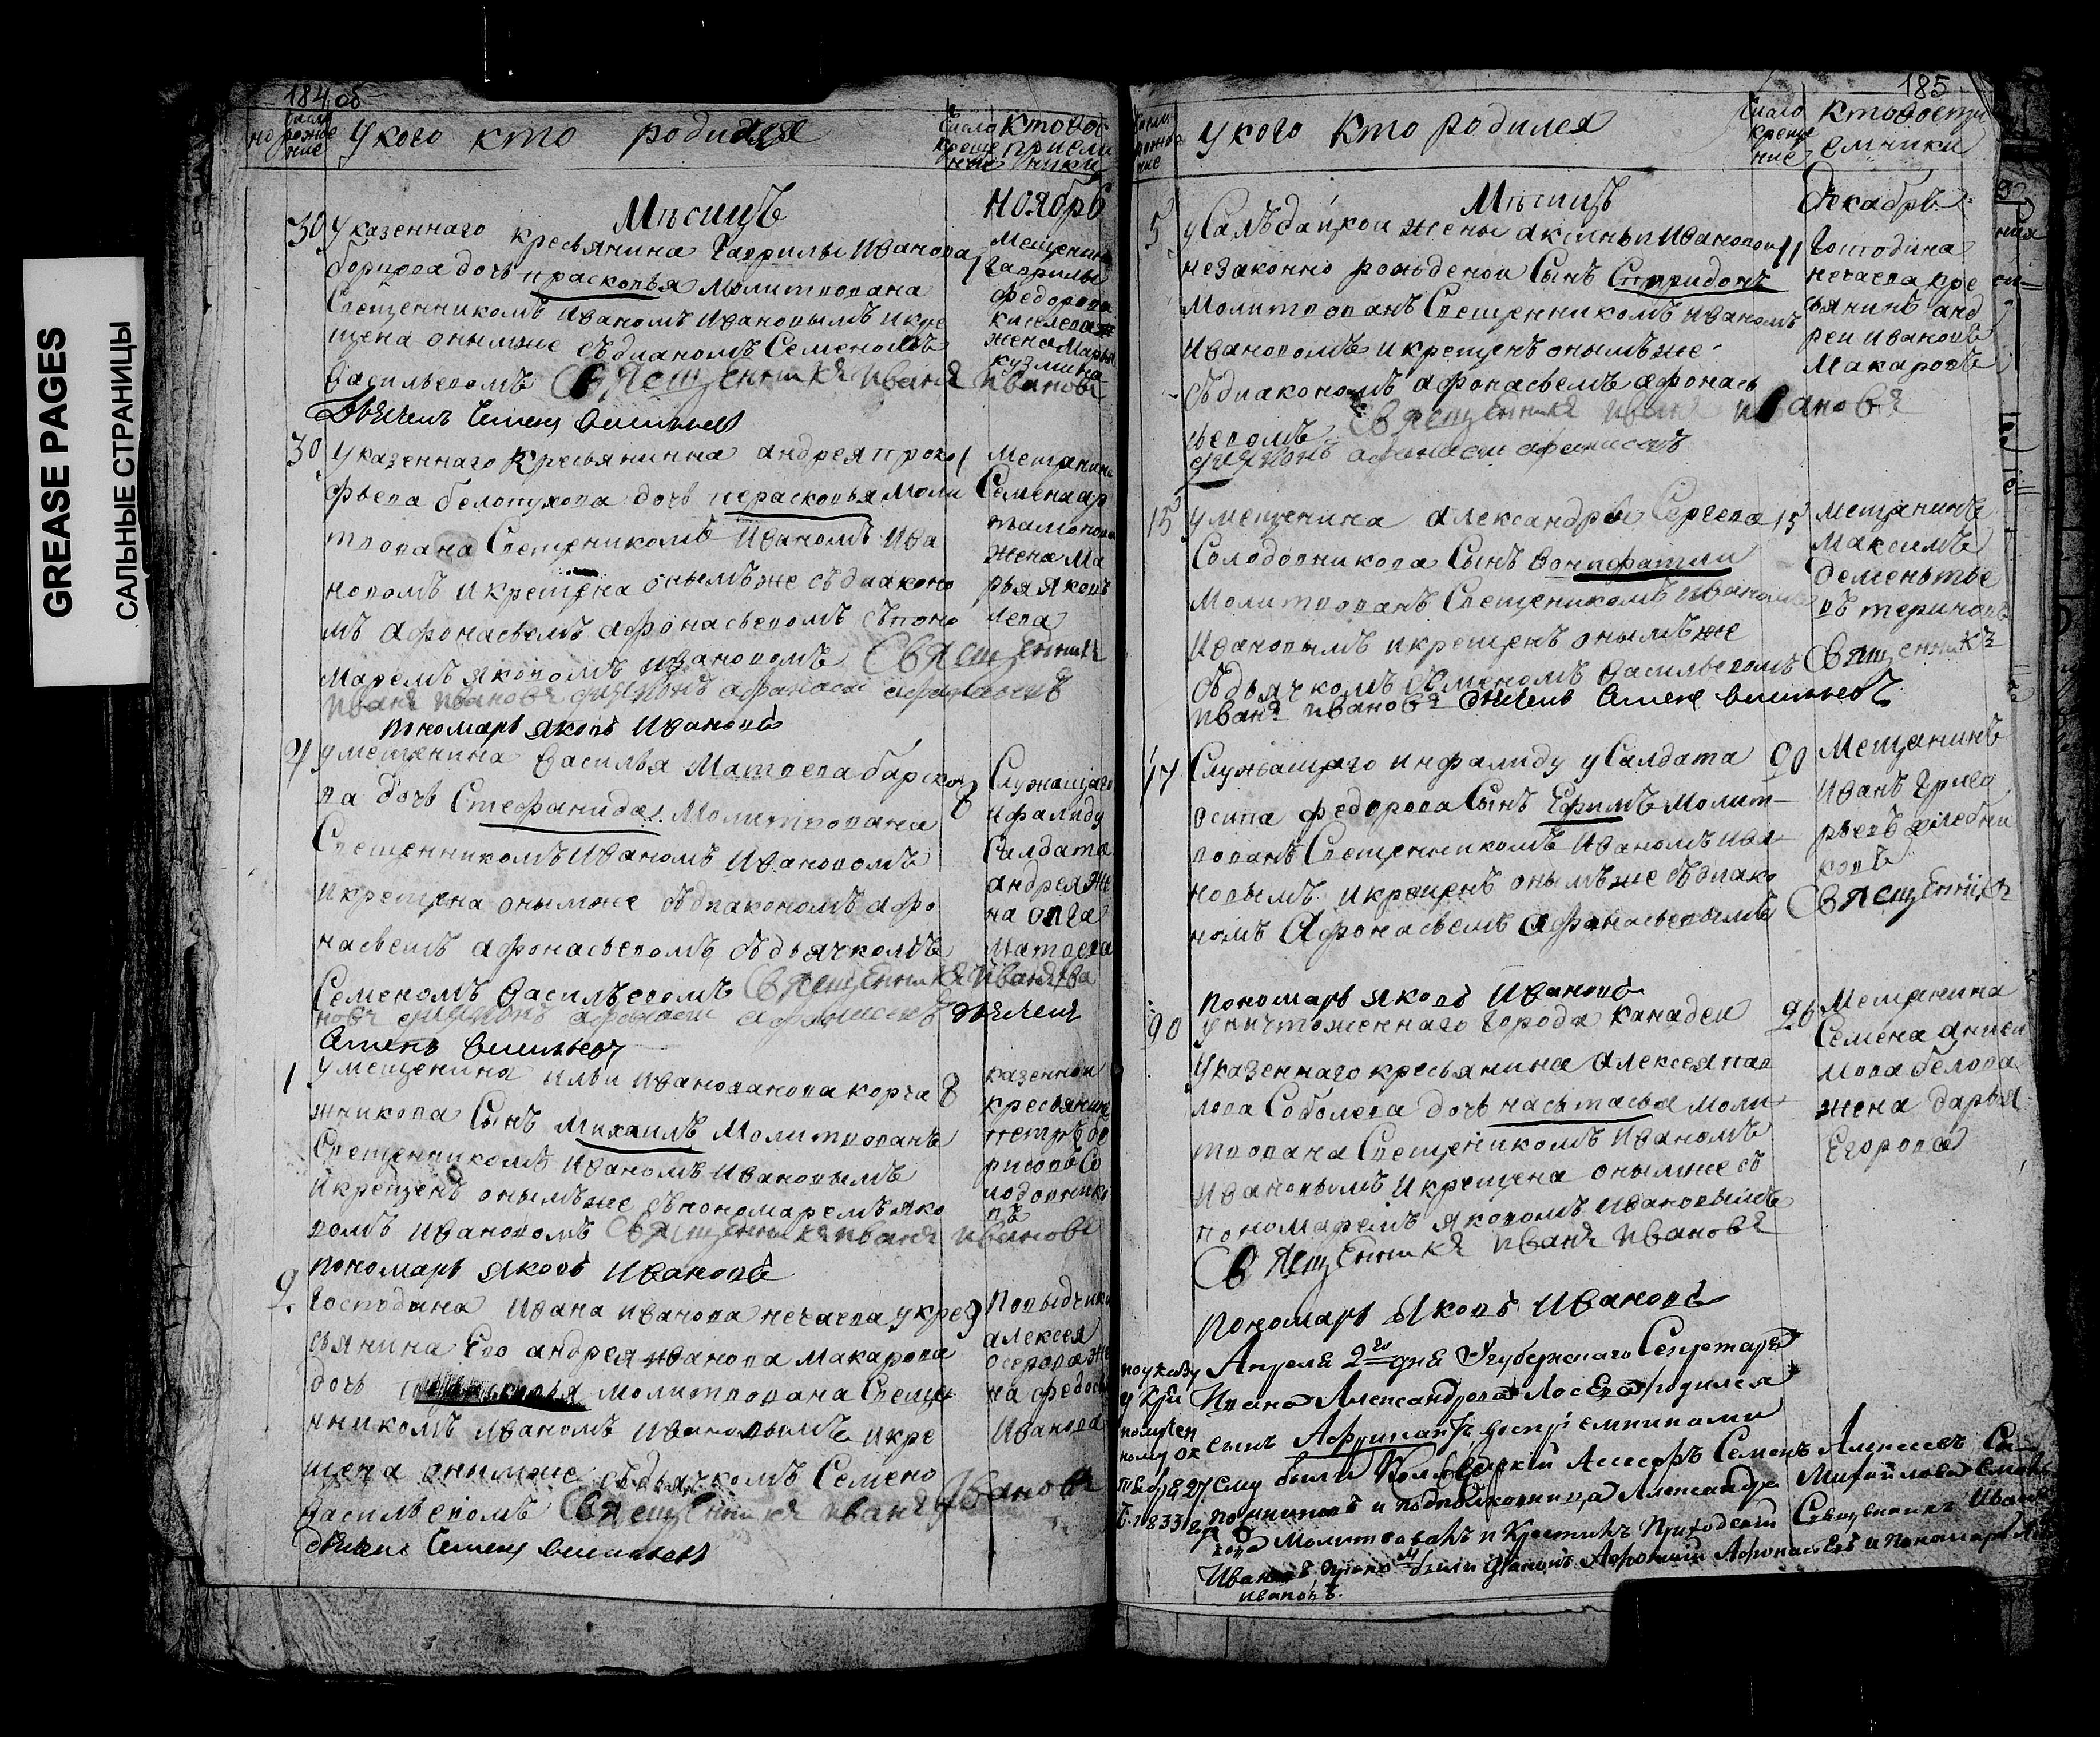 GREASE PAGES
САЛЬНЫЕ СТРАНИЦЫ
184 об
число рожде ние
У кого кто родился
число креще ние
Кто вос приемники
Мѣсицъ Ноябрь
30 У казеннаго кресьянина Гаврилы Иванова 1
борисва дочь праскопья молитвована
Свещенникомъ Иваномъ Ивановымъ и кре
щена онымже съдианомъ Семеномъ
Васильевомъ Священникъ Иванъ Ивановъ
Дьячекъ Семенъ Васильевъ
Мещенина
Гаврилы
Федорова
киселева
жена Марья
кузмина
30 У казеннаго кресьянинна андрея проко 1
фьева белопухова дочь пераскопья моли
твована Свещеникомъ Иваномъ Ива
новомъ и крещена онымъже съдиаконо
мъ афонасьемъ афонасьевомъ съпоно
маремъ яковомъ ивановомъ Священникъ
Иванъ Ивановъ диаконъ афанаси афанасевъ
пономарь яковъ Ивановъ
Мещанина
Семена ар
тамонова
жена Ма
рья яковъ
лева
4 у мещенина Василья Матвева барско 8
ва дочь Стефанида молитвована
Свещенникомъ Иваномъ Ивановомъ
и крещена онымже съдиакономъ афо
насьемъ афонасьевомъ съдьячкомъ
Семеномъ Василъевомъ Священникъ Иванъ Ива
новъ диаконъ афанаси афанасевъ дьячекъ
Семенъ Васильевъ
Служащаго
нфалиду
Салдата
андрея же
на олга
Матвева
1 У мещенина ильи Иванованова корча 8
жникова Сынъ михаилъ Молитвованъ
Свещенникомъ Иваномъ Ивановымъ
и крещенъ онымъже съпономаремъ яко
вомъ Ивановомъ Священникъ Иванъ Ивановъ
пономарь яковъ Ивановъ
казеннои
кресьянинъ
петръ бо
рисовъ Со
лодовнико
въ
9 Господина Ивана иванова нечаева у крес 9
сьянина Ево андрея иванова Макарова
дочь молитвована Свеще
нникомъ Иваномъ Ивановымъ и кре
щена онымже съдьячкомъ Семено
Васильевомъ Священникъ Иванъ Ивановъ
дьячекъ Семенъ Васильевъ
Повытчика
алексея
осерова же
на федось
Иванова
185
У кого кто родился
число креще ние
Кто воспри емники
Мѣсицъ Декабрь
5 у Салъдацкои жены аксиньи Ивановои 11
незаконно рожденои Сынъ Спиридонъ
Молитвованъ Свещенникомъ Иваномъ
Ивановомъ и крещенъ онымъже
съдиакономъ афонасьемъ афонась
ьевомъ Священникъ Иванъ Ивановъ
диаконъ афанаси афанасевъ
Господина
нечаева кре
сьянинъ анд
реи Ивановъ
Макаровъ
15 У мещенина Александры Сергева 15
Солодовникова Сынъ Вонифатии
Молитвованъ Свещеникомъ Иваномъ
Ивановымъ и крещенъ онымъже
съдьячкомъ Семеномъ Васильевомъ Священникъ
Иванъ Ивановъ дьячекъ Семенъ Васильевъ
мещанинъ
Максимъ
деменьтье
въ
17 Служащаго инфалиду у Салдата 20
осипа федорова Сынъ Ефимъ молит
вованъ Свещенникомъ Иваномъ Ива
новымъ и крещенъ онымъже съдиако
номъ Афонасьемъ афонасьевымъ Священникъ
пономарь яковъ Ивановъ
Мещанинъ
Иванъ Григо
рьевъ хлебни
ковъ
20 уничтоженнаго города канадеи 26
У казеннаго кресьянина Алексея пав
лова Соболева дочь насътасья моли
твована Свещеникомъ Иваномъ
Ивановымъ и крещена онымже съ
пономаремъ яковомъ Ивановымъ
Священникъ Иванъ Ивановъ
пономарь яковъ Ивановъ
Мещанина
Семена аниси
мова белова
жена дарья
Егорова
по указу Апреля 2го дня У губернскаго Секретаря
Ивана Александрова Лосева родился
сынъ Африканъ воспріемниками
ему были Коллежскій Асессоръ Семенъ Алексеевъ
и подполковница Александра Михайлова
Молитвовалъ и крестилъ Приходской Священникъ Иванъ
Ивановъ были диаконъ Афонасій Афонасьевъ и пономарь
Ивановъ.